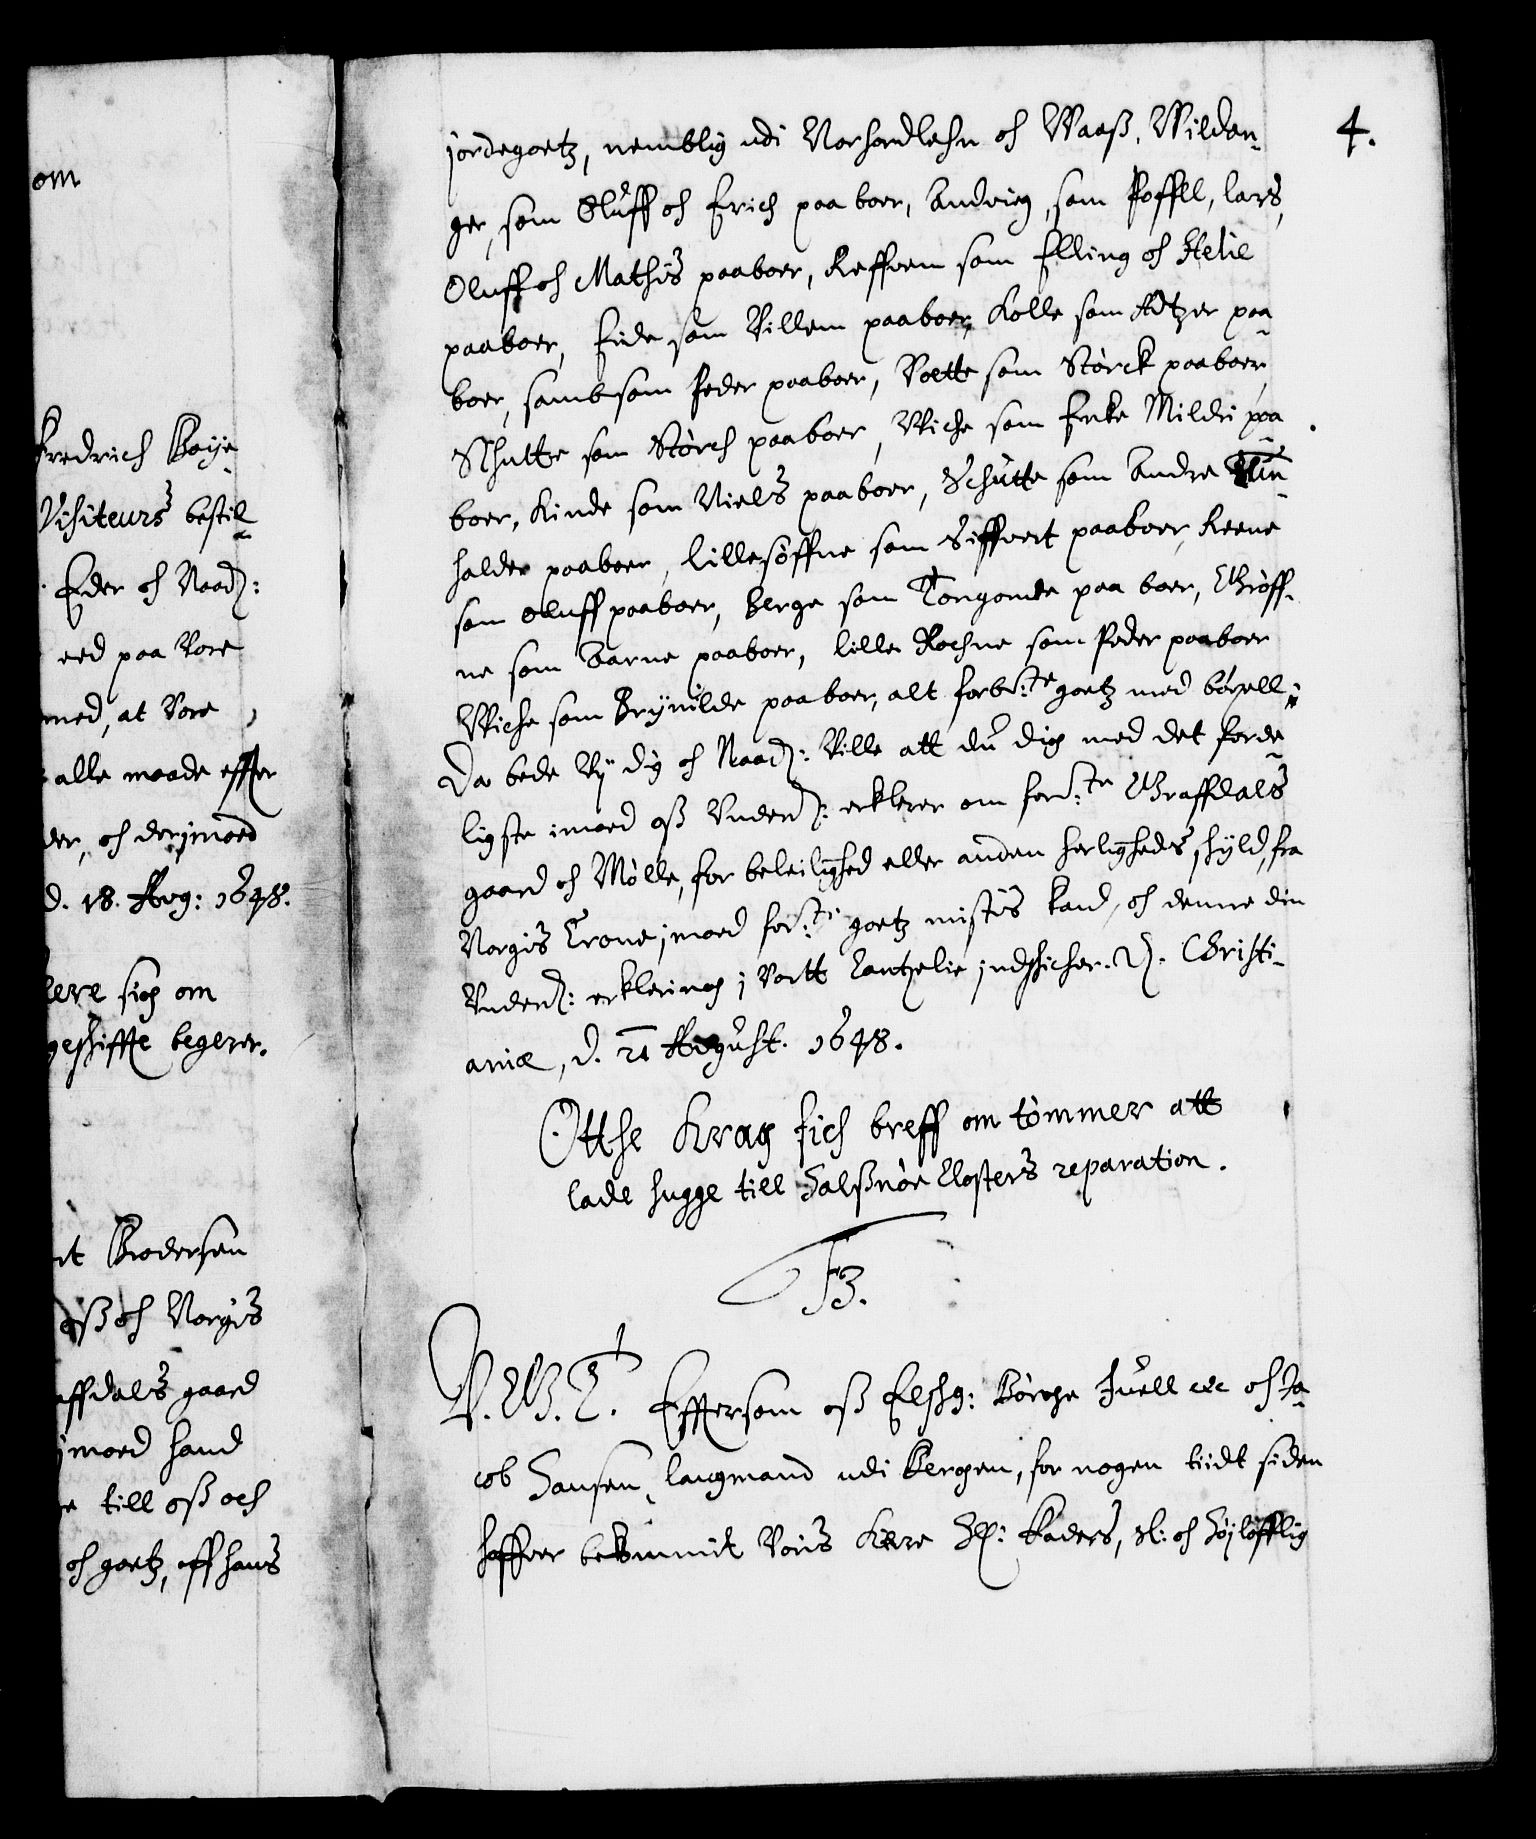 om
Fredrich Boÿe
Visiteurs bestil-
Eder och Naad:
eed paa Vore
med, at Vore
alle maade effter
der, och derimoed
d. 18. Aug: 1648.
lere sig om
geschiffte begerer.
it Brodersen
oß och Norgis
affdals gaard
imoed hand
till oß och
och goetz, aff hans
4.
jordegoetz, nemblig udi Norhordlehn och Waaß, Wildan-
ger, som Oluff och Erich paa boer, Andvig, som Poffll, lars,
Oluff och Mathis paaboer, Reffven som Elling och Helie
paaboer, Eide som Villem paaboer, Kolle som Adtzer paa-
boer, sambt som Peder paaboer, Voette som Störck paaboer,
Schutte som Störch paaboer, Wiche som Encke Mildri paa
boer, Kinde som Niels paaboer, Schutte som Andre
halder paaboer, lillesöffne som Siffvert paaboer, Reene
som Oluff paaboer, Berge som Torgomde paa boer, Gröff-
ne som Barne paaboer, lille Rochne som Peder paaboer
Wiche som Brÿnilde paaboer, alt forbte goetz med böxell:
Da bede Vÿ dig och Naad: Ville att du dig med det forde-
ligste imoed oß Underd: erklerer om forte Graffdals
gaard och Mölle, for beleilighed eller anden herligheds skyld, fra
Norgis Crone imoed forte goetz mistis kand, och denne din
Underd: erklering i Vortt Cantzelie indschicher. D. Christi-
aniæ, d. 21 August. 1648.
Otthe Krag fich breff om tömmer att
lade hugge till Halßnöe Closters reparation.
F3.
V. G. T. Effttersom oß Elschg: Börge Juell etc och Ja-
cob Hansen, laugmand udi Bergen, for nogen tiidt siden
haffver bekommit Voris Kiere H: Faders, sl: och Höjlofflig